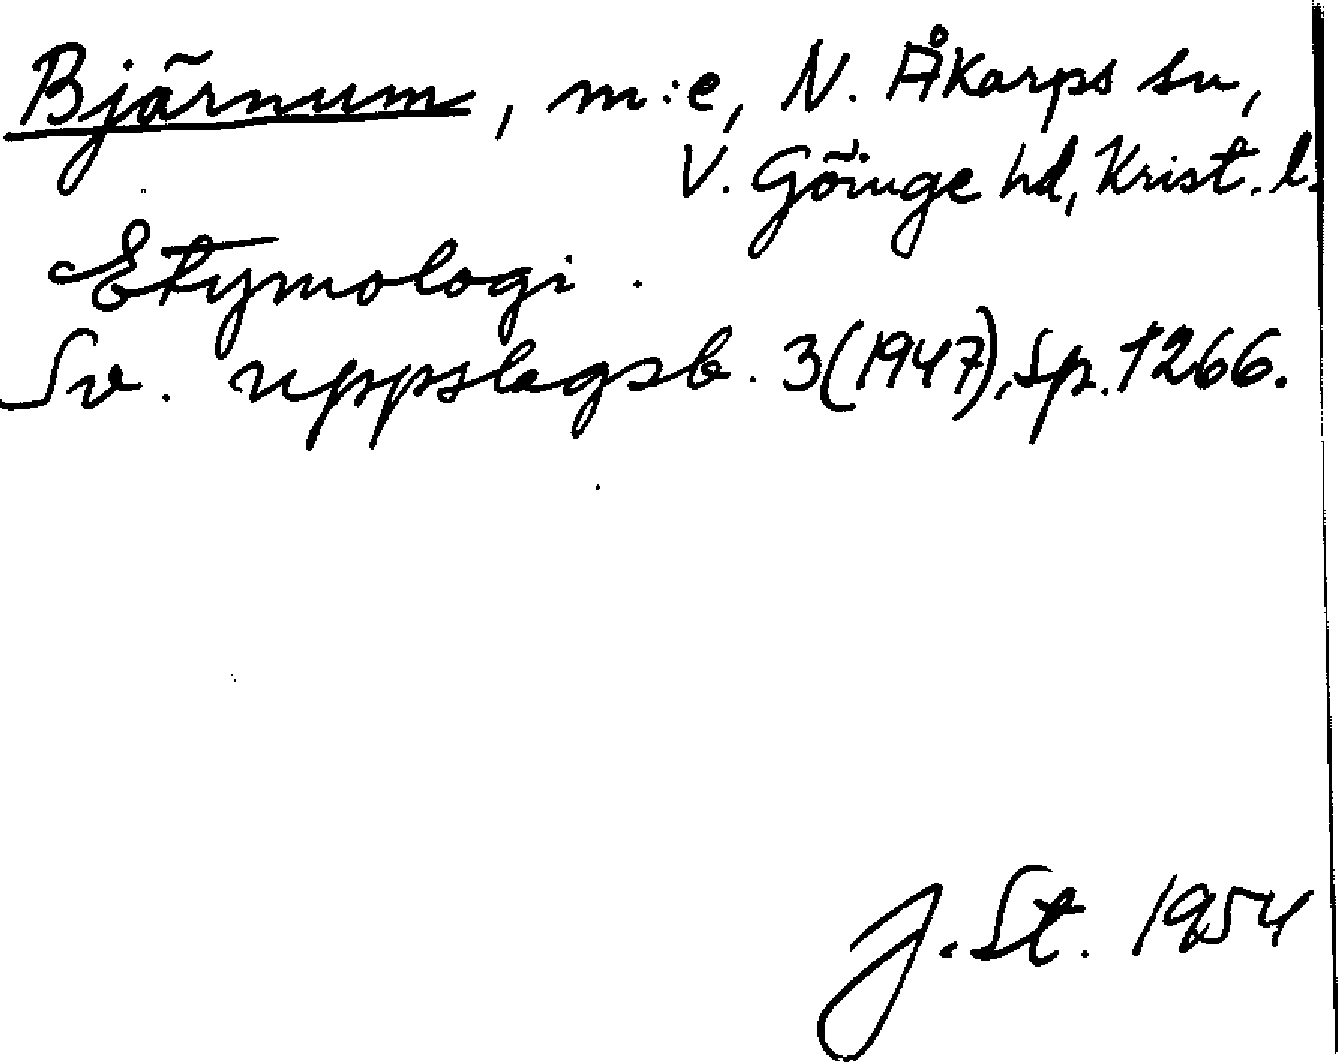 Bjärnum, m:e, N. Åkarps sn,
V. Göinge hd, Krist. l.
Etymologi.
Sv. uppslagsb. 3(1947), sp. 1266.
J. St. 1954